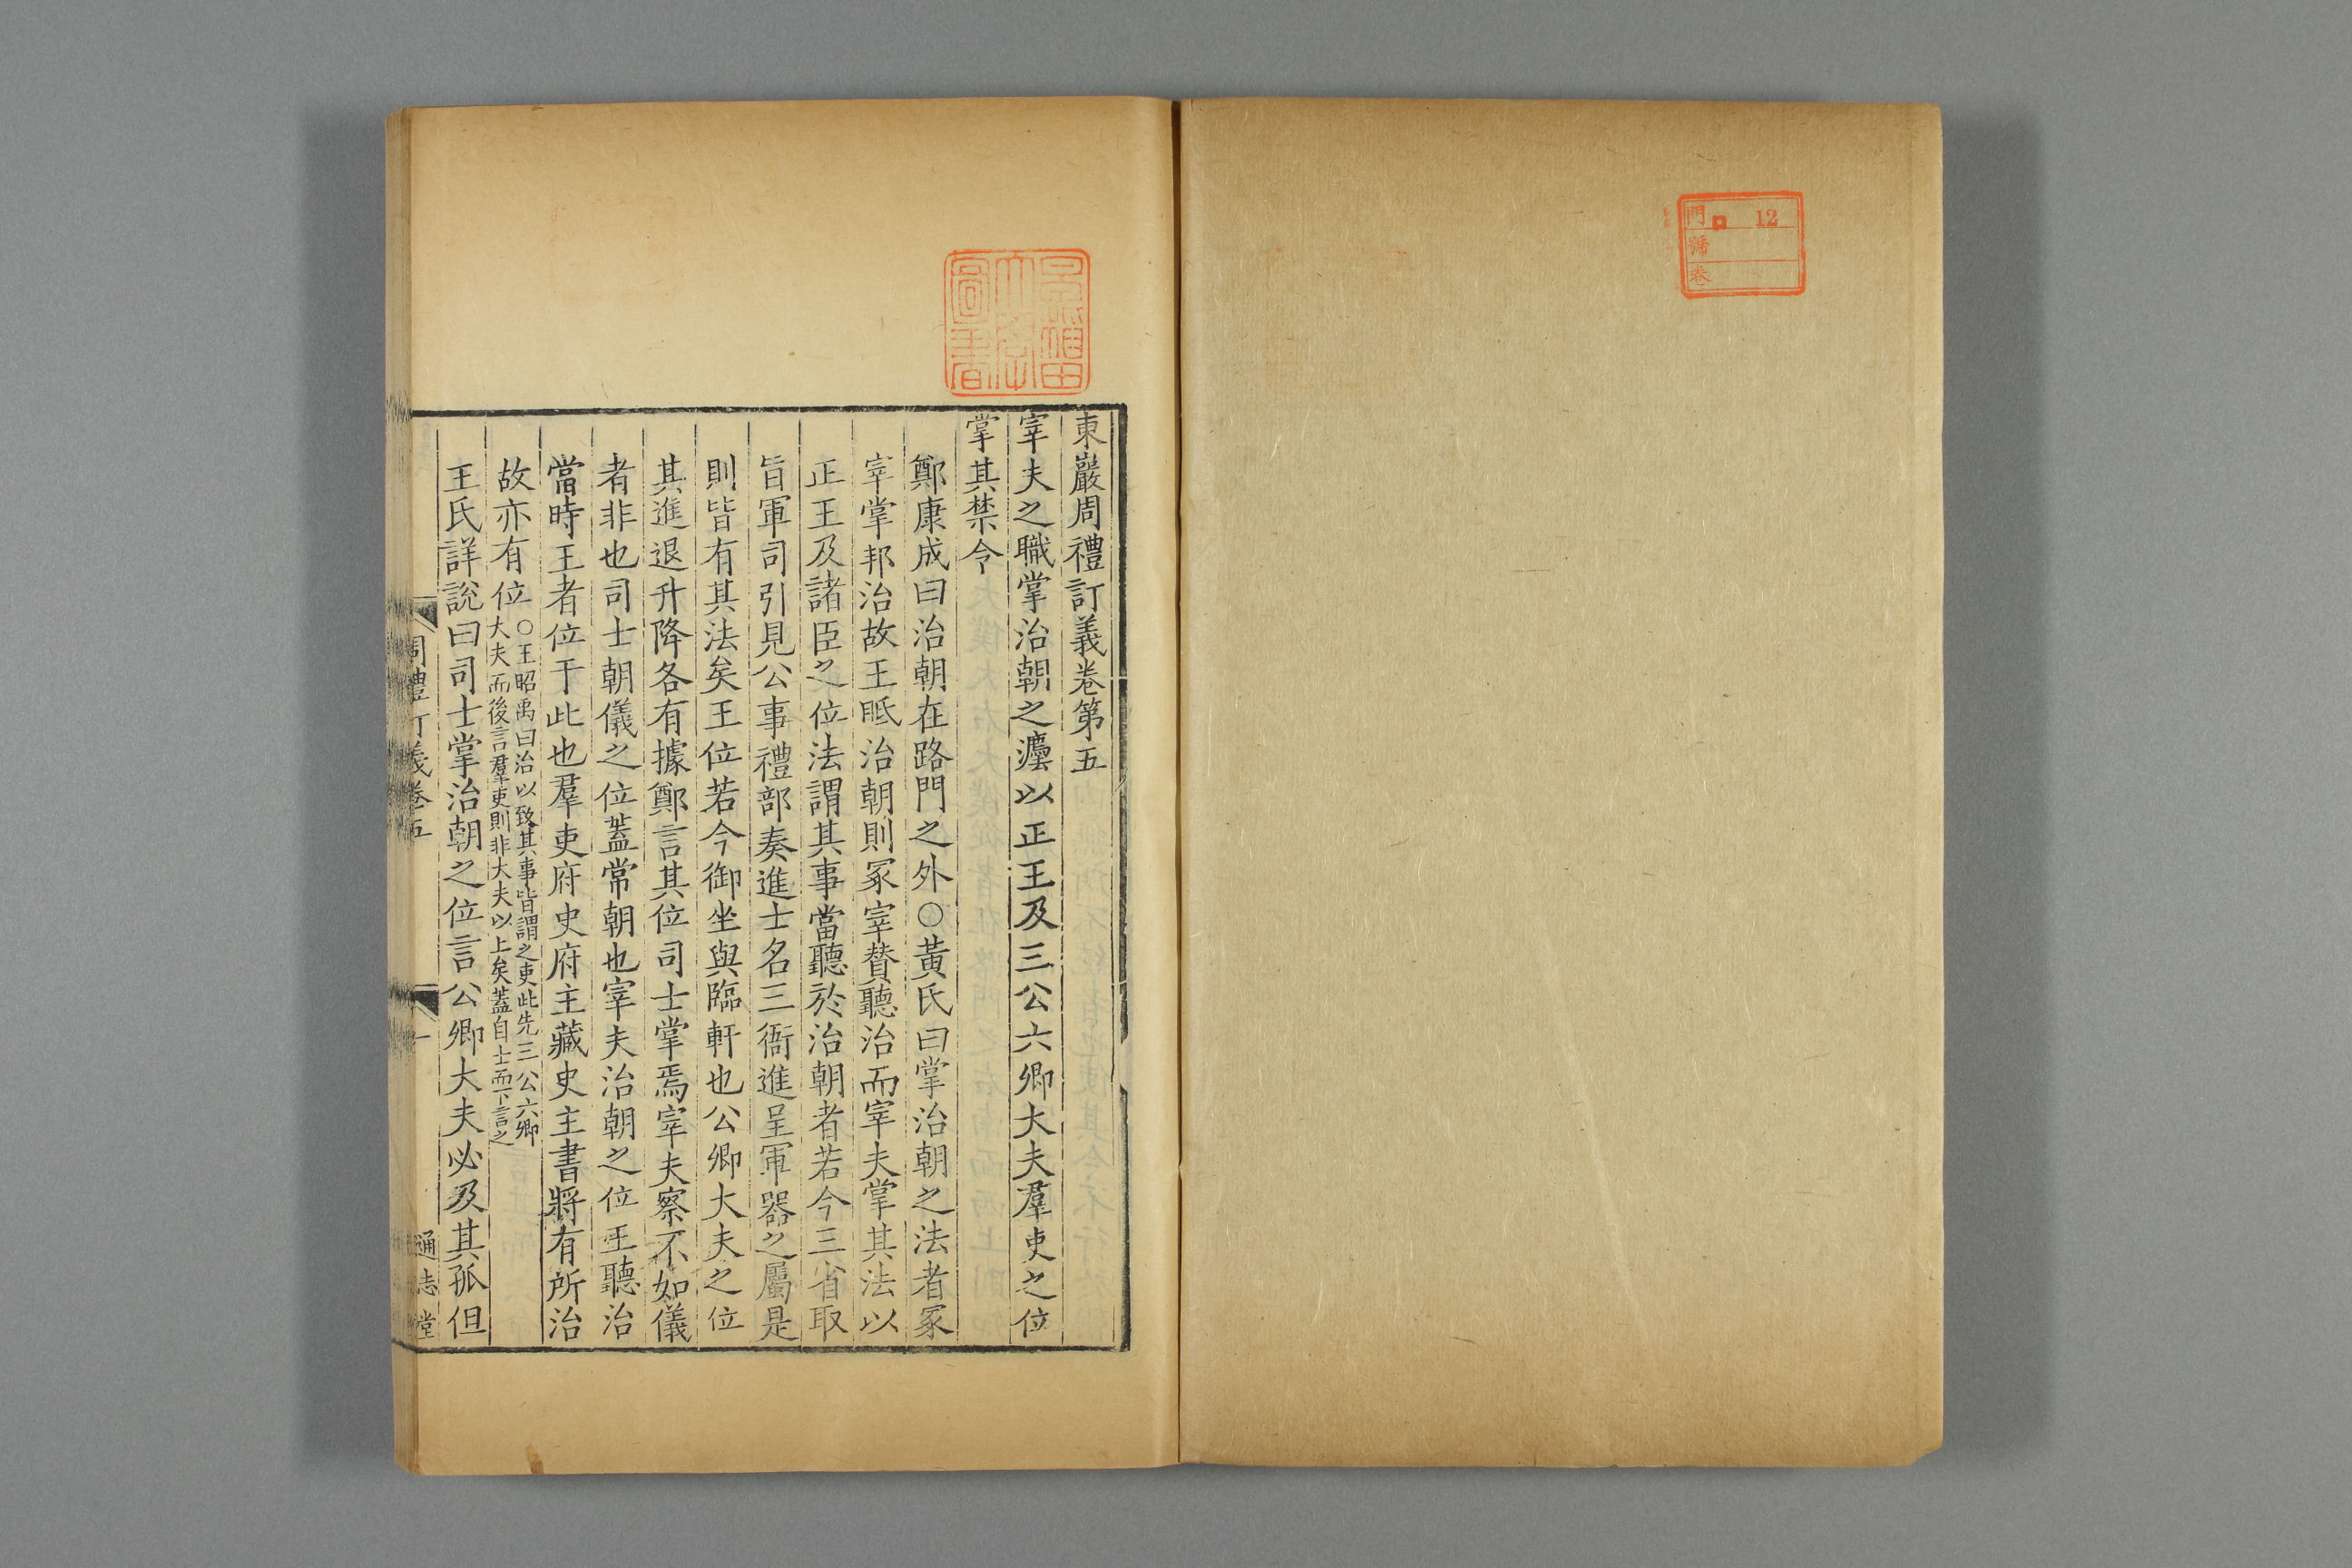 門 12
號
卷
東巖周禮訂義卷第五
宰夫之職掌治朝之灋以正王及三公六卿大夫羣吏之位
掌其禁令
鄭康成曰治朝在路門之外○黃氏曰掌治朝之法者冢
宰掌邦治故王眡治朝則冢宰贊聽治而宰夫掌其法以
正王及諸臣之位法謂其事當聽於治朝者若今三省取
旨軍司引見公事禮部奏進士名三衙進呈軍器之屬是
則皆有其法矣王位若今御坐與臨軒也公卿大夫之位
其進退升降各有據鄭言其位司士掌焉宰夫察不如儀
者非也司士朝儀之位蓋常朝也宰夫治朝之位王聽治
當時王者位于此也羣吏府史府主藏史主書將有所治
故亦有位○王昭禹曰治以致其事皆謂之吏此先三公六卿
大夫而後言羣吏則非大夫以上矣蓋自士而下言之
王氏詳說曰司士掌治朝之位言公卿大夫必及其孤但
周禮訂義卷五
一
通志堂